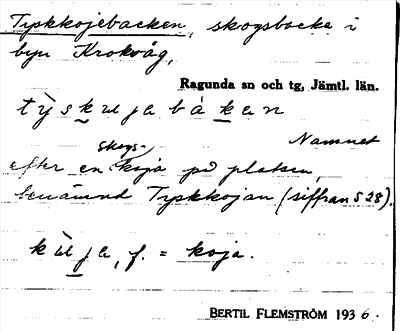 Tyskkojebacken, skogsbacke i
byn Krokvåg,
Ragunda sn och tg, Jämtl. län.
Namnet
efter en skogskoja på platsen,
benämnd Tyskkojan (siffran 528).
f. = koja.
BERTIL FLEMSTRÖM 1936.